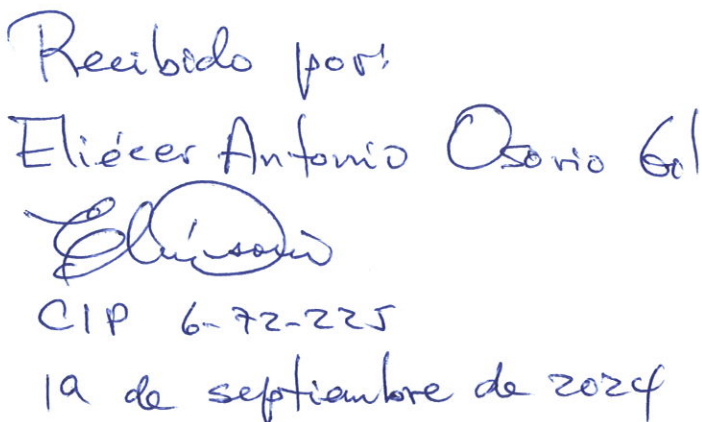 Recibido por:
Eliécer Antonio Osorio Gil
CIP 6-72-225
19 de septiembre de 2024